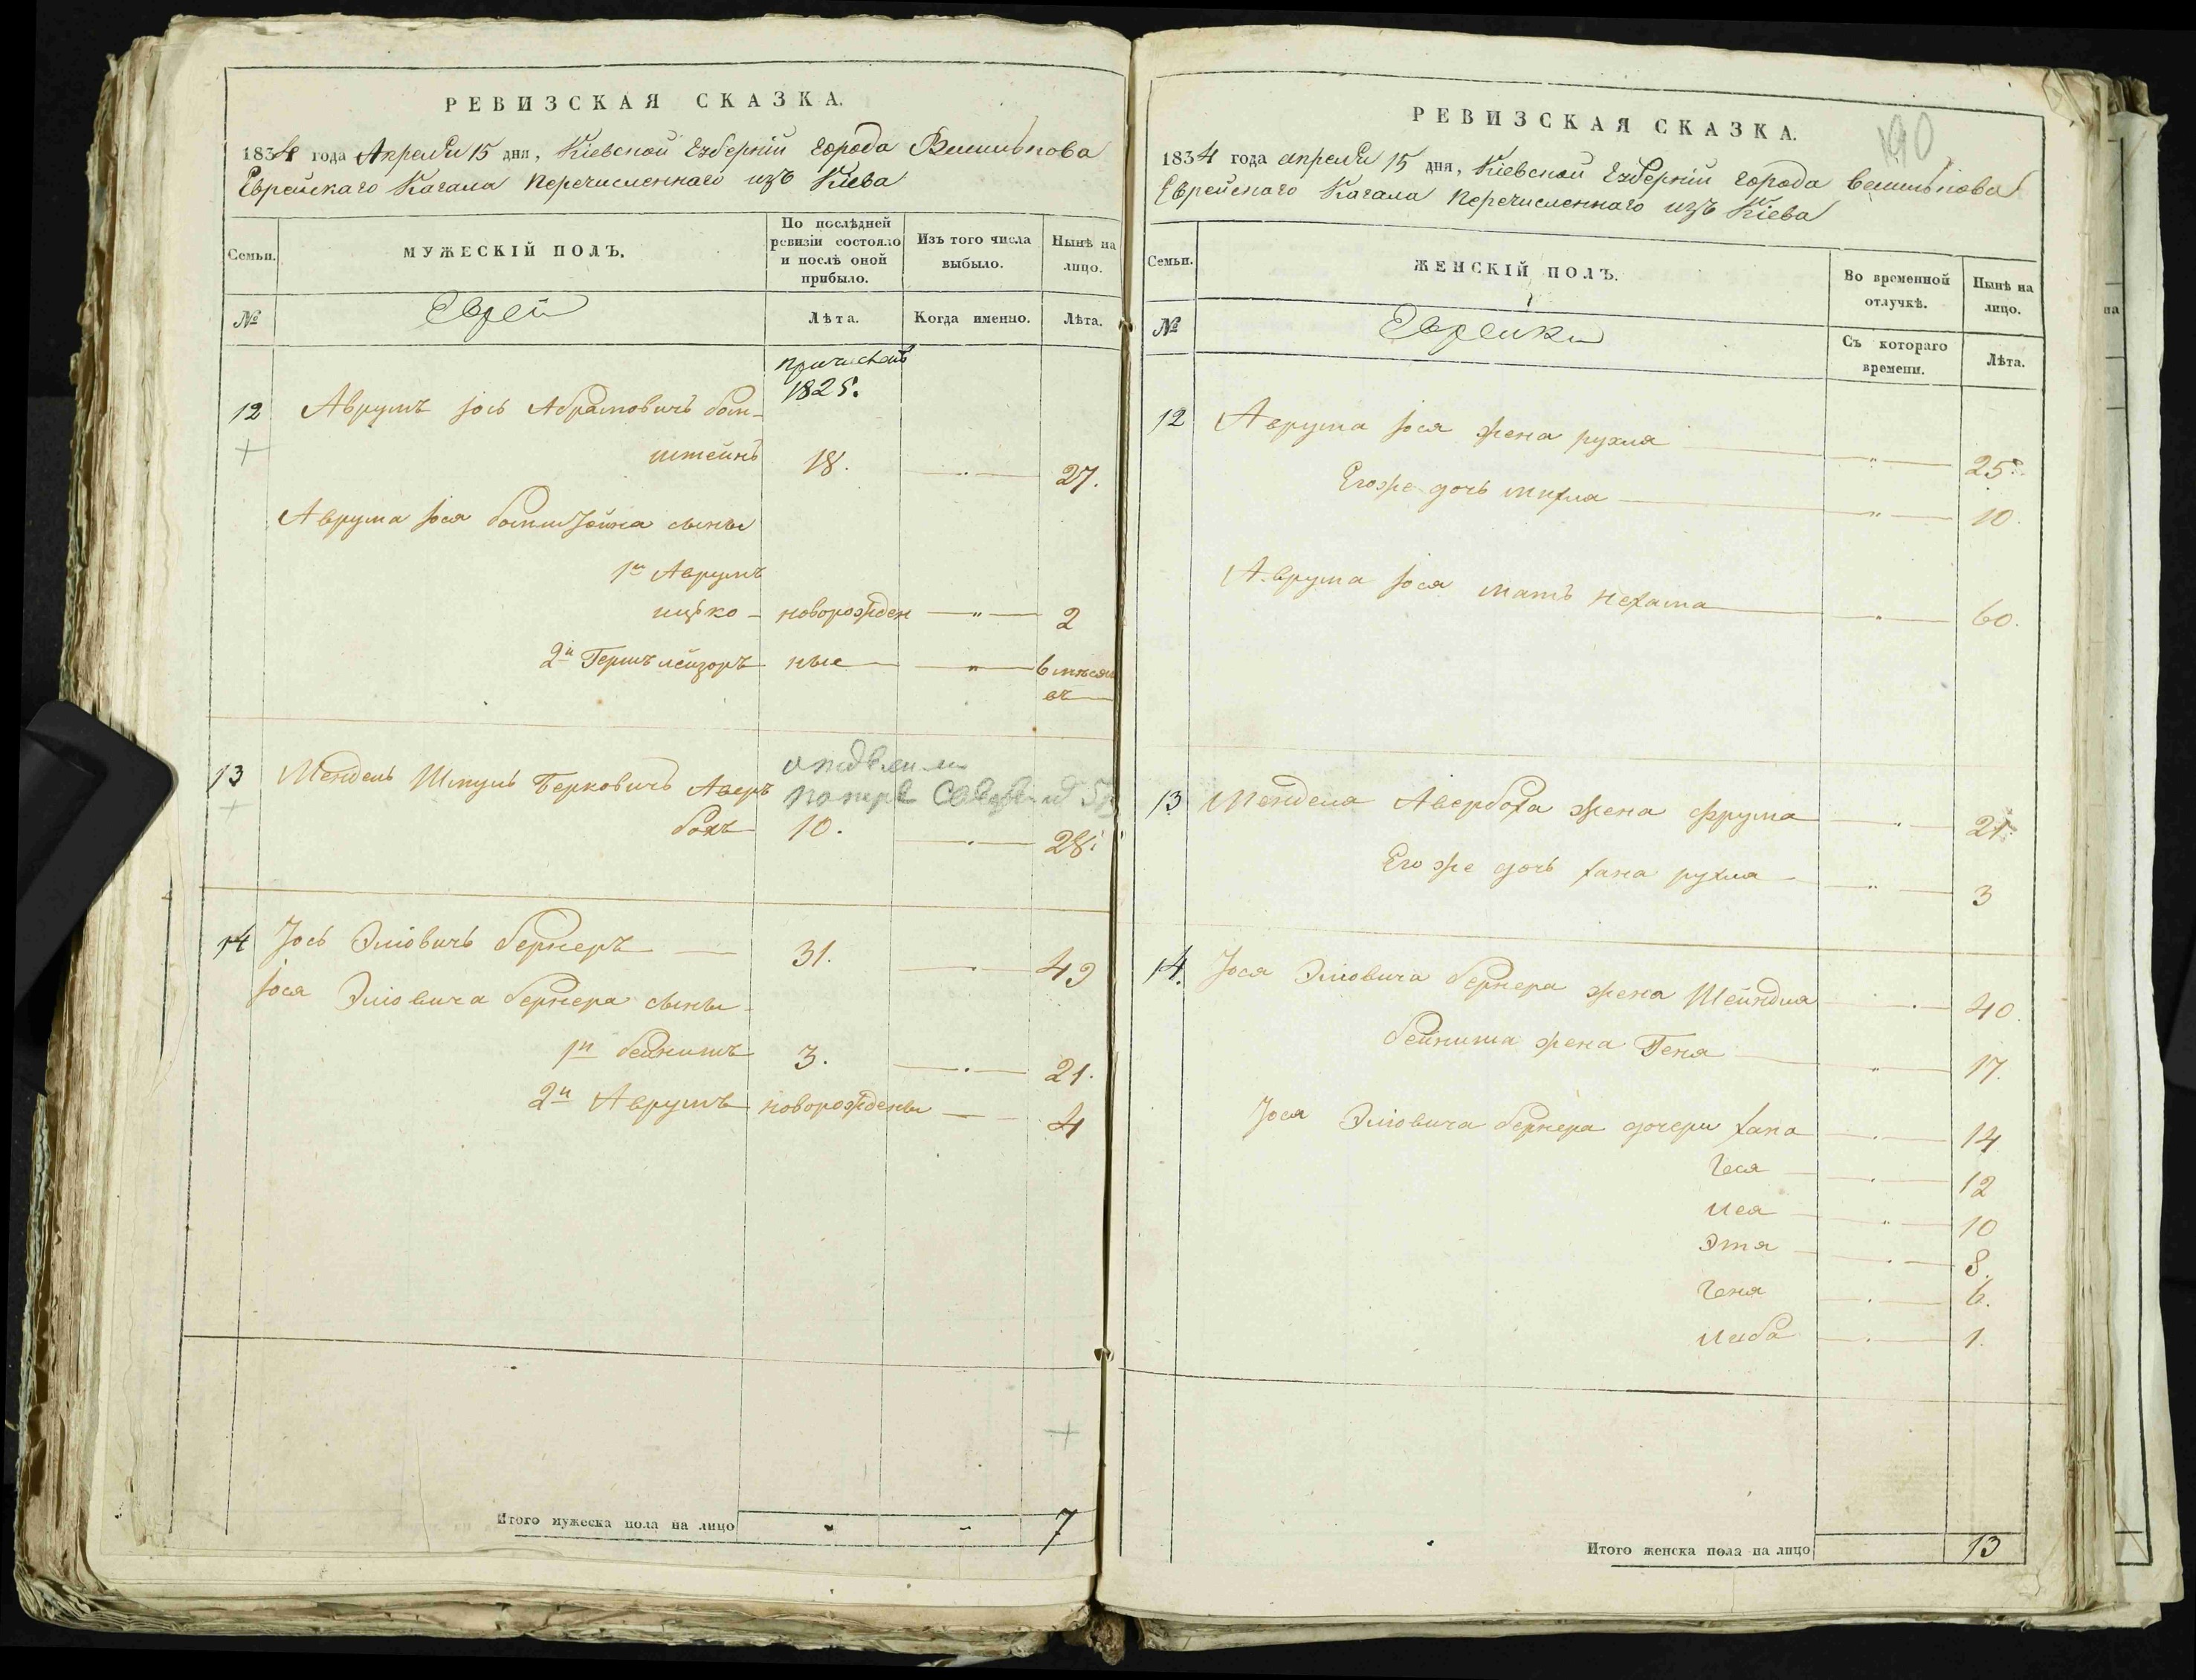 РЕВИЗСКАЯ СКАЗКА.
1834 года Апреля 15 дня, Кіевской Губерніи города Василькова
Еврейскаго Кагала перечисленнаго изъ Кіева
Семьи.
МУЖЕСКІЙ ПОЛЪ.
По послѣдней ревизіи состояло и послѣ оной прибыло.
Изъ того числа выбыло.
Нынѣ на лицо.
№
Еврей
Лѣта.
Когда именно.
Лѣта.
1825.
12 Аврумъ Іось Абрамовичъ бом-
штейнъ 18. 27.
Аврума Іося бомштейна сыны
1й Аврумъ
ицько - новорожден — „ — 2
2й Гершъ лейзоръ ные — „ — 6 мѣсяц
овъ
13 Мендель Шмуль Берковичъ Авер
бохъ 10. 28.
14 Іось Эліовичъ бернеръ — 31. 49
Іося Эліовича бернера сыны
1й бейнишъ 3. 21.
2й Аврумъ новорожденны — 4
Итого мужеска пола на лицо „ „ 7
190
РЕВИЗСКАЯ СКАЗКА.
1834 года апреля 15 дня, Кіевской Губерніи города василькова
Еврейскаго Кагала перечисленнаго изъ Кіева
Семьи.
ЖЕНСКІЙ ПОЛЪ.
Во временной отлучкѣ.
Нынѣ на лицо.
№
Еврейки
Съ котораго времени.
Лѣта.
12 Аврума Іося жена рухля — „ — 25.
Егоже дочь — „ — 10.
Аврума Іося мать нехама — „ — 60.
13 Менделя Авербоха жена фрума — „ — 21.
Его же дочь хана рухля — „ — 3
14. Іося Эліовича бернера жена Шейндля — „ — 40.
бейниша жена Геня — „ — 17.
Іося Эліовича бернера дочери хана — „ — 14
Геся — „ — 12
лея — „ — 10
Этя — „ — 8.
Геня — „ — 6.
либа — „ — 1.
Итого женска пола на лицо 13